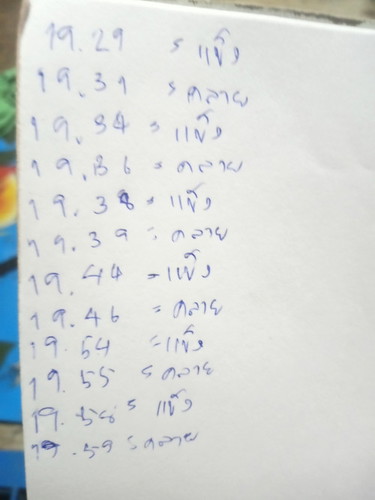 19.29 = แข็ง
19.31 = คลาย
19.34 = แข็ง
19.36 = คลาย
19.38 = แข็ง
19.39 = คลาย
19.44 = แข็ง
19.46 = คลาย
19.54 = แข็ง
19.55 = คลาย
19.58 = แข็ง
19.59 = คลาย